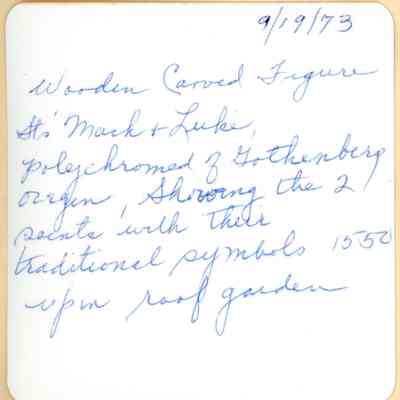 9/19/73
Wooden Carved Figure
Sts' Mark & Luke,
polychromed of Gothenberg
orgin, Showing the 2
saints with their
traditional symbols 1550
up in roof garden